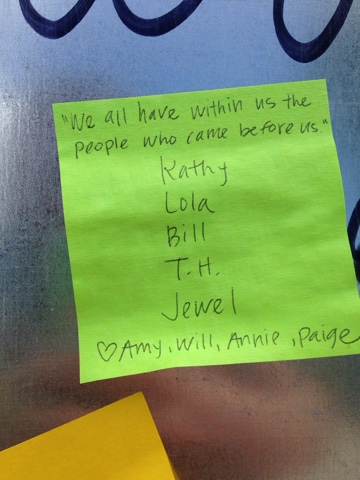 "We all have within us the
people who came before us"
Kathy
Lola
Bill
T.H.
Jewel
♡Amy, Will, Annie, Paige